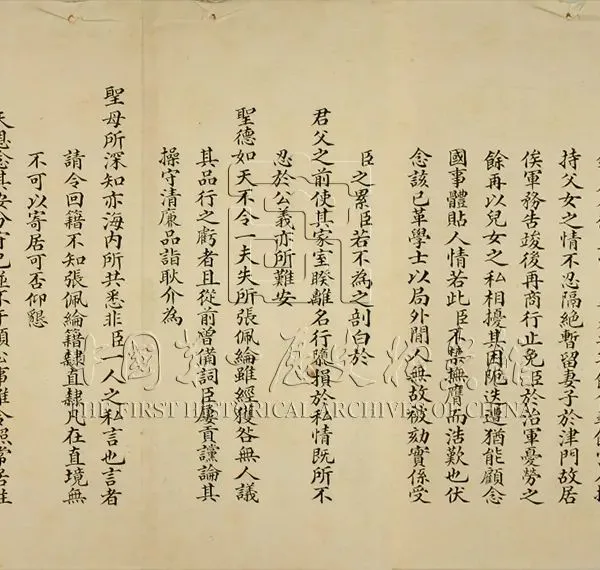 持父女之情不忍隔絕暫留妻子於津門故居
俟軍務告竣後再商行止免臣於治軍憂勞之
餘再以兒女之私相擾其困阨迭遭猶能顧念
國事體貼人情若此臣不禁撫膺而浩歎也伏
念該已革學士以局外閒人無故被劾實係受
臣之累臣若不為之剖白於
君父之前使其家室睽離名行隳損於私情既所不
忍於公義亦所難安
聖德如天不令一夫失所張佩綸雖經獲咎無人議
其品行之虧者且從前曾備詞臣屢貢讜論其
操守清廉品詣耿介為
聖母所深知亦海內所共悉非臣一人之私言也言者
請令回籍不知張佩綸籍隸直隸凡在直境無
不可以寄居可否仰懇
中國第一歷史檔案館
THE FIRST HISTORICAL ARCHIVES OF CHINA